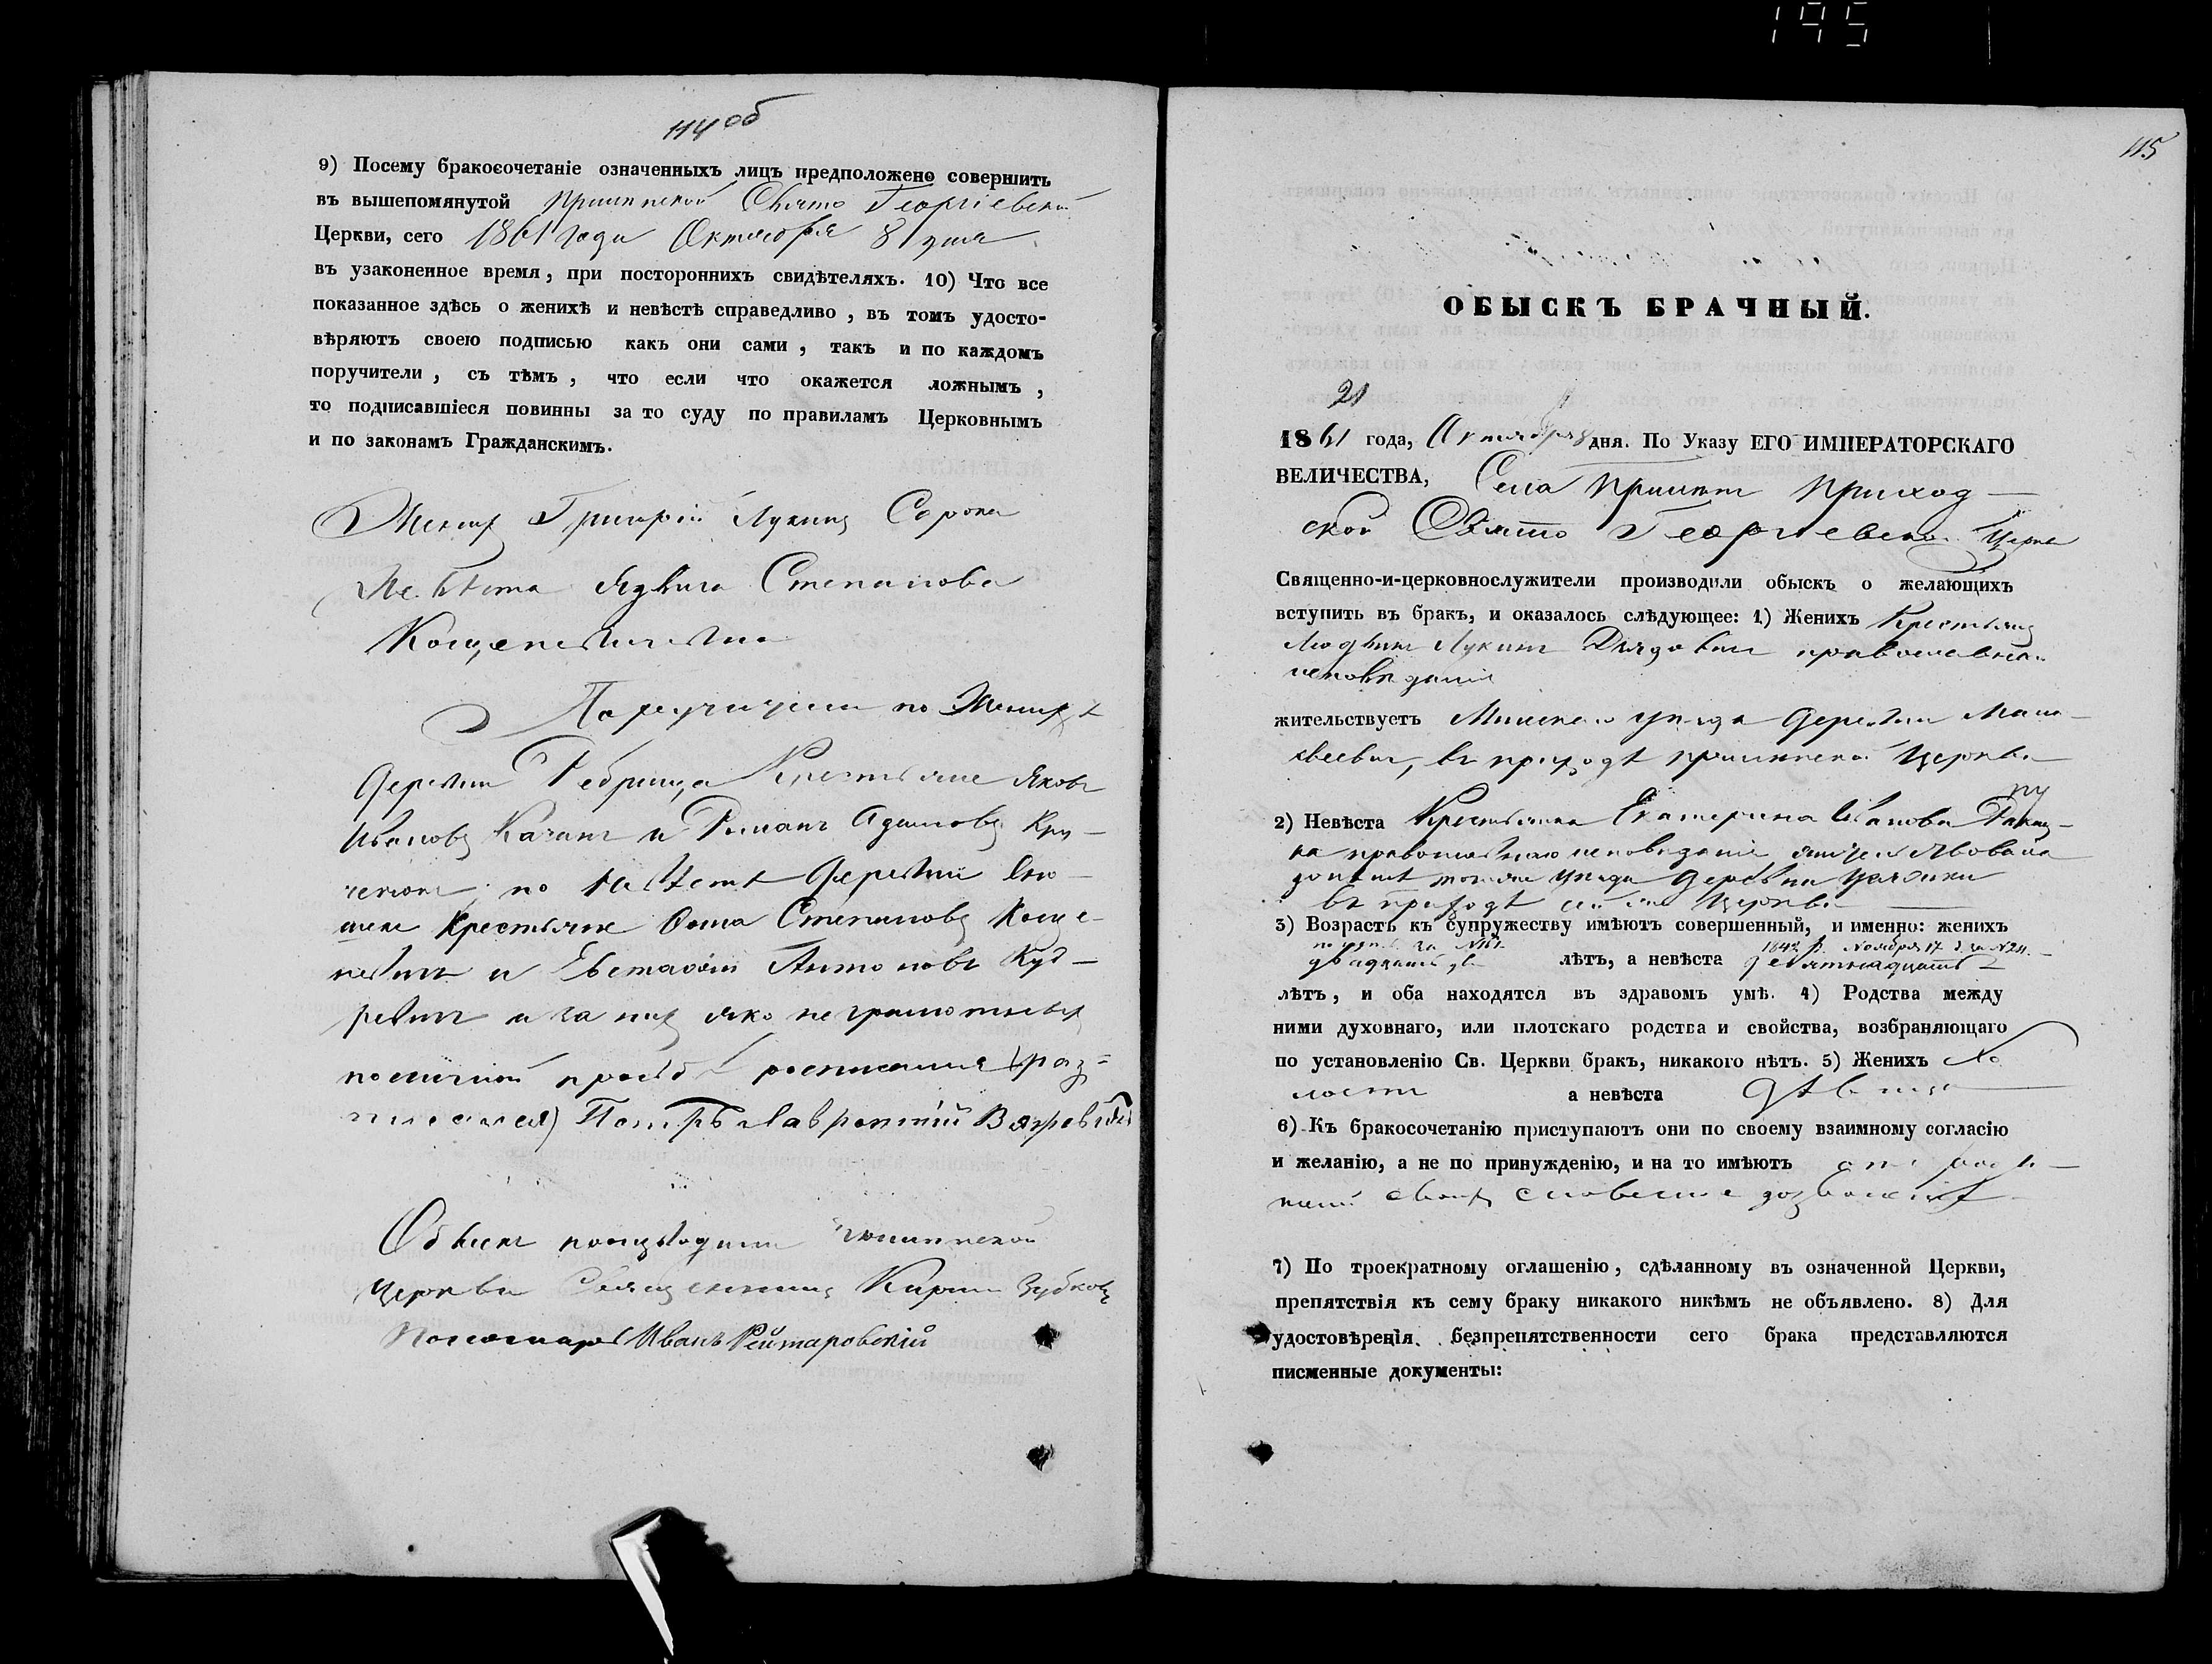 195
114 об
9) Посему бракосочетаніе означенныхъ лицъ предположено совершить
въ вышепомянутой Свято Георгіевской
Церкви, сего 1861 года Октября 8 дня
въ узаконенное время, при постороннихъ свидѣтеляхъ. 10) Что все
показанное здѣсь о женихѣ и невѣстѣ справедливо, въ томъ удосто-
вѣряютъ своею подписью какъ они сами, такъ и по каждомъ
поручители, съ тѣмъ, что если что окажется ложнымъ,
то подписавшіеся повинны за то суду по правиламъ Церковнымъ
и по законамъ Гражданскимъ.
Женихъ Григорій Лукинъ Сорока
Невѣста Ядвига Степанова
по Женихѣ
деревни Ребрища Крестьяне Яковъ
Ивановъ Качанъ и Романъ Адамовъ Кру-
по Невѣстѣ деревни
Крестьяне Фома Степановъ Коще-
и Евстафій Антоновъ Куд-
ревичъ а за нихъ яко неграмотныхъ
по личной просьбѣ росписался (рос-
писался) Петръ Лаврентій
Обыскъ производили
Церкви Священникъ Кирилъ Зубковъ
Пономарь Иванъ Рейтаровскій
115
ОБЫСКЪ БРАЧНЫЙ.
21
1861 года, Октября 8 дня. По Указу ЕГО ИМПЕРАТОРСКАГО
ВЕЛИЧЕСТВА, Села Приход-
ской Свято Георгіевской Церкви
Священно-и-церковнослужители производили обыскъ о желающихъ
вступить въ бракъ, и оказалось слѣдующее: 1) Женихъ Крестьянинъ
Людвигъ Лукинъ православнаго
исповѣданія
жительствуетъ Минскаго уѣзда деревни
въ приходѣ Церкви
2) Невѣста Крестьянка Екатерина Иванова
православнаго исповѣданія
тогоже уѣзда деревни
въ приходѣ Церкви
3) Возрастъ къ супружеству имѣютъ совершенный, и именно: женихъ
1842 г. Ноября 17 д. за N 24.
двадцать лѣтъ, а невѣста девятнадцать
лѣтъ, и оба находятся въ здравомъ умѣ. 4) Родства между
ними духовнаго, или плотскаго родства и свойства, возбраняющаго
по установленію Св. Церкви бракъ, никакого нѣтъ. 5) Женихъ хо-
лостъ а невѣста дѣвица
6) Къ бракосочетанію приступаютъ они по своему взаимному согласію
и желанію, а не по принужденію, и на то имѣютъ отъ роди-
телей своихъ словесное дозволеніе
7) По троекратному оглашенію, сдѣланному въ означенной Церкви,
препятствія къ сему браку никакого никѣмъ не объявлено. 8) Для
удостовѣренія безпрепятственности сего брака представляются
писменные документы: